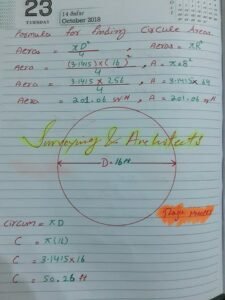 23
TUESDAY
14 Safar
October 2018
Formula for finding Circule Area
Aeras = πD²/4 , Aeras = πR²
Aera = (3.1415)×(16)²/4 , A = π×8²
Aera = 3.1415×256/4 , A = 3.1415×64
Aera = 201.06 , A = 201.06
Surveying & Architects
D=16ft
Circum = πD
C = π(16)
C = 3.1415×16
C = 50.26 ft